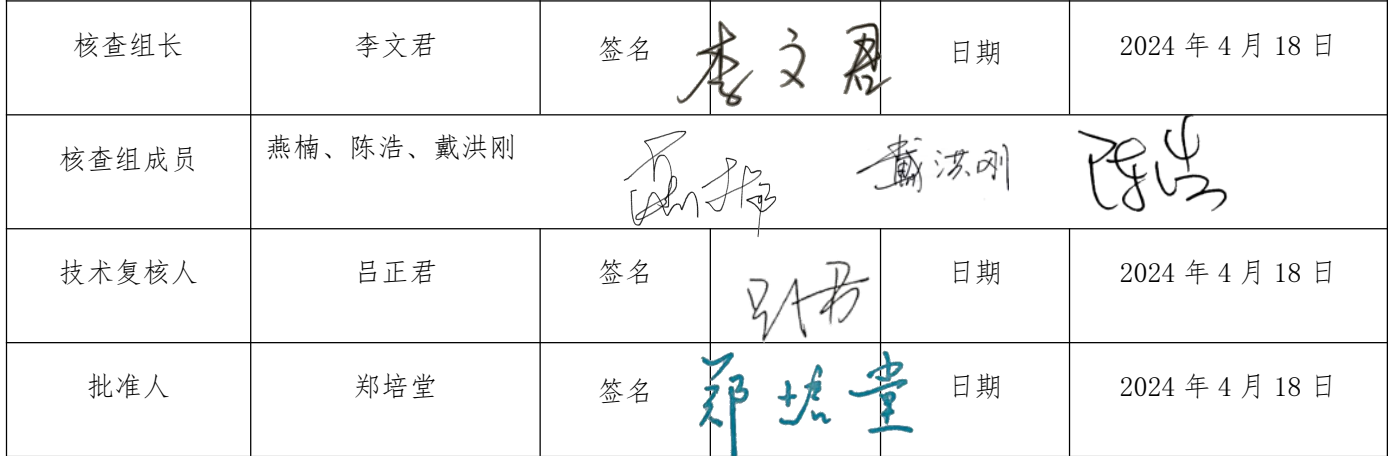 核查组长 李文君 签名 李文君 日期 2024 年 4 月 18 日
核查组成员 燕楠、陈浩、戴洪刚 燕楠 戴洪刚 陈浩
技术复核人 吕正君 签名 日期 2024 年 4 月 18 日
批准人 郑培堂 签名 郑培堂 日期 2024 年 4 月 18 日